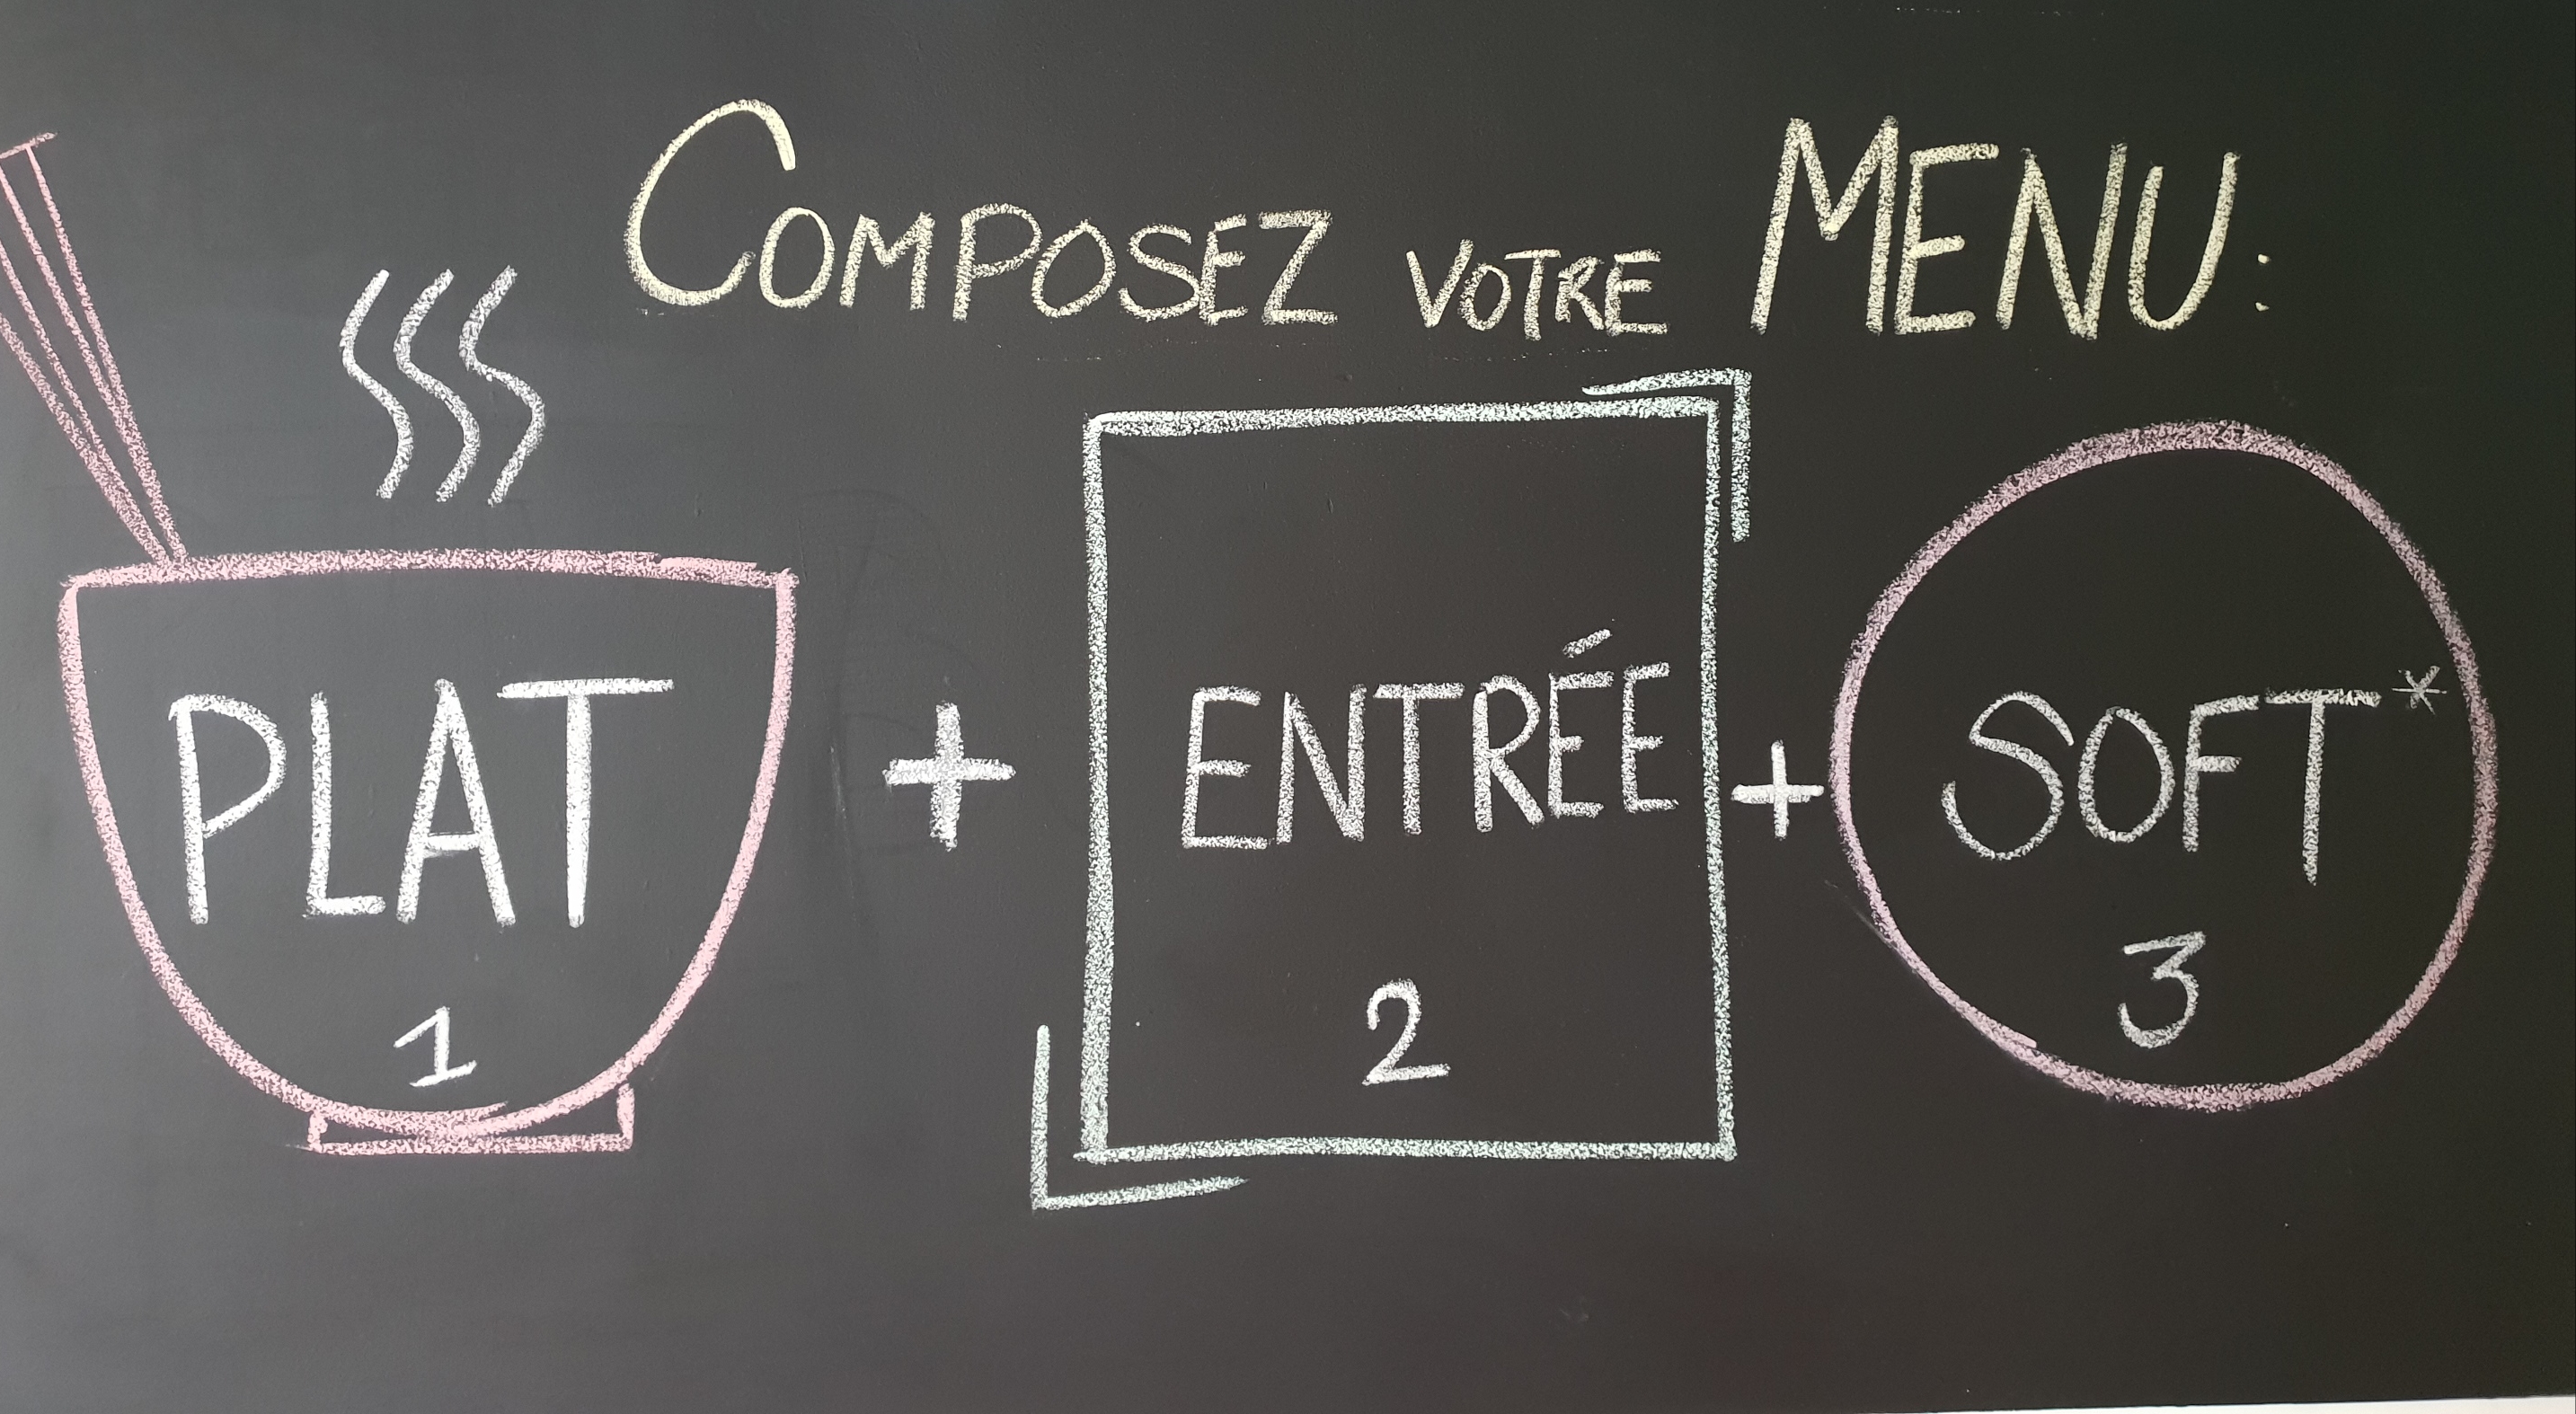 COMPOSEZ VOTRE MENU:
PLAT + ENTRÉE + SOFT*
1 2 3